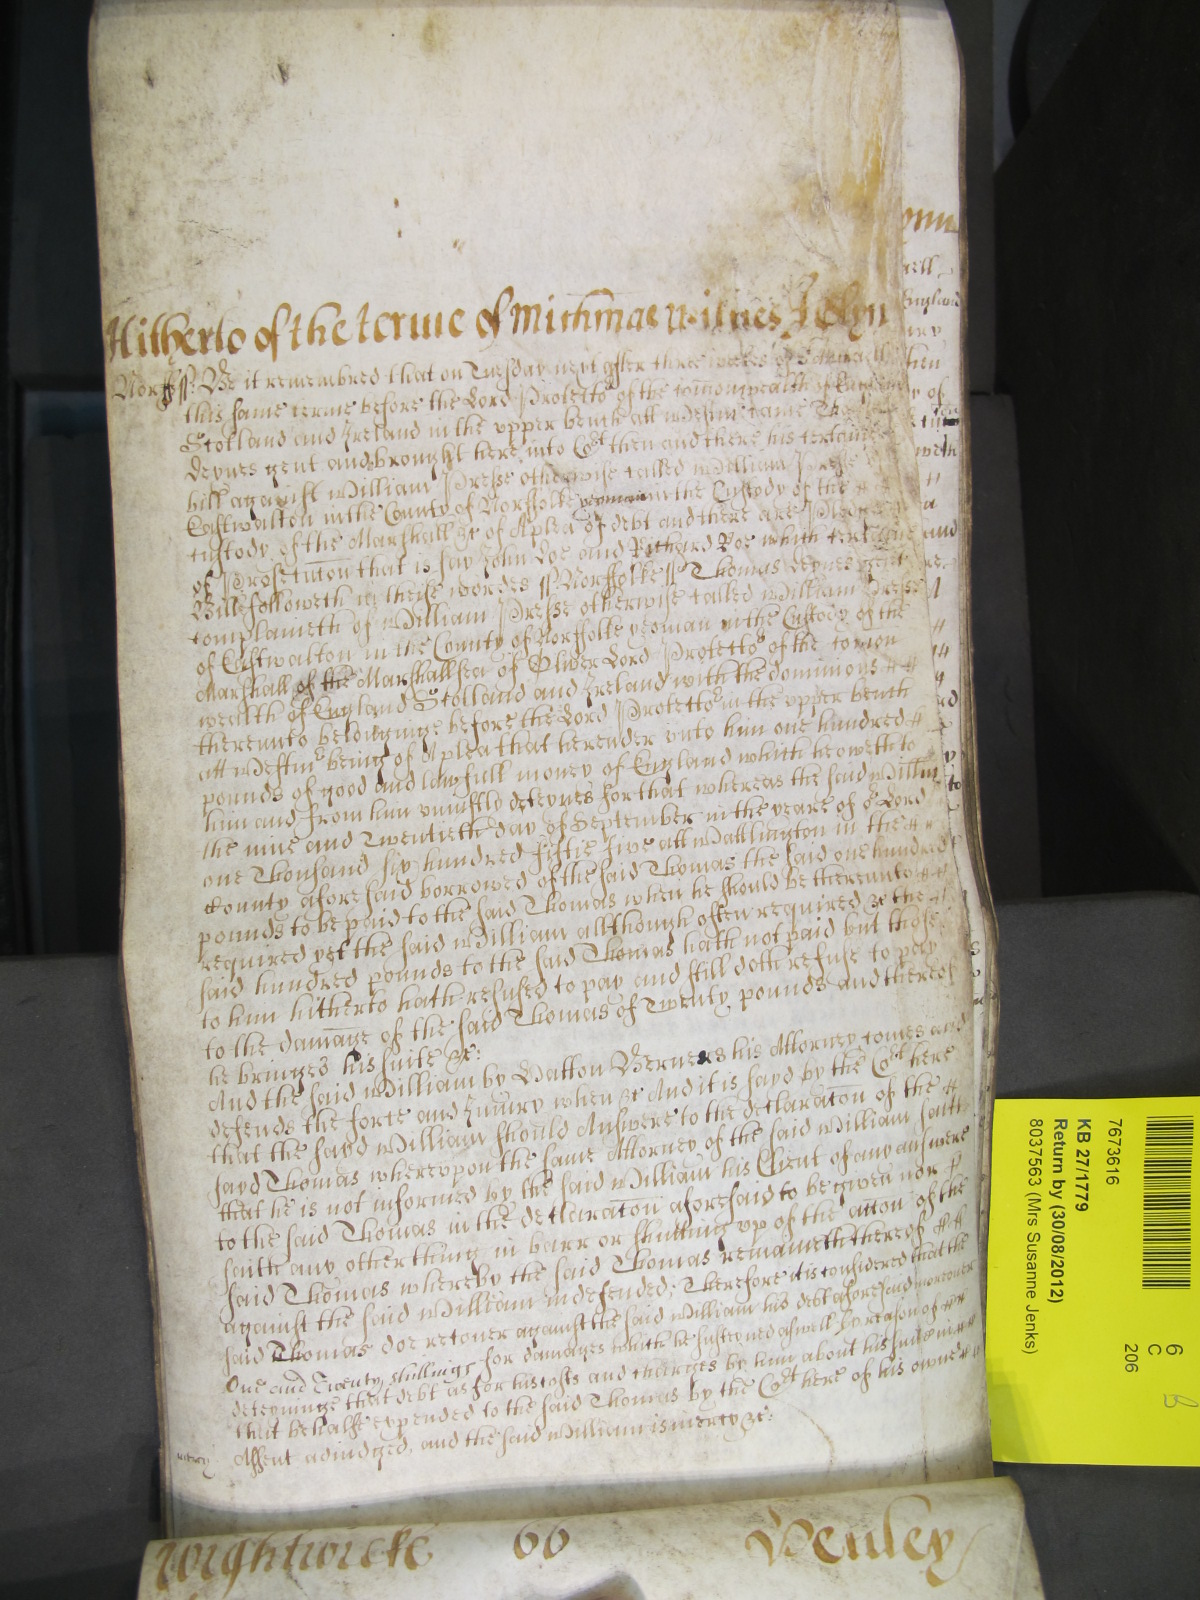 Hitherto of the terme of Michmas witnes John
Norff ss Be it remembred that on Tuesday next after three weekes of St Michaell
this same terme before the Lord Protector of the Comonwealth of England
Scotland and Ireland in the upper bench att Westmr came
Deynes gent and brought here into Cort then and there his certaine
bill against William Presse otherwise called William Presse
Eastwalton in the County of Norffolke yeoman in the Custody of the
custody of the Marshall &c of A plea of debt and there are Pledges
of Prosecucon that is say John Doe and Richard Roe which certaine
Bill followeth in theise wordes ss Norffolke ss Thomas Deynes gent
complaineth of William Presse otherwise called William Presse
of Eastwalton in the County of Norffolke yeoman in the Custody of the
Marshall of the Marshallsea of Oliver Lord Protector of the Comon
wealth of England Scotland and Ireland with the dominions
thereunto belonginge before the Lord Protector in the upper bench
att Westmr being of A plea that he render unto him one hundred
pounds of good and lawfull money of England which he oweth to
him and from him uniustly deteynes for that whereas the said Willm
the nine and Twentieth day of September in the yeare of or Lord
one Thousand six hundred fiftie five att Wallington in the
County aforesaid borrowed of the said Thomas the said one hundred
pounds to be paid to the said Thomas when he should be thereunto
required yet the said William allthough often required &c the
said hundred pounds to the said Thomas hath not paid but those
to him hitherto hath refused to pay and still doth refuse to pay
to the damage of the said Thomas of Twenty pounds and thereof
he bringes his suite &c:
And the said William by Hatton Berners his Attorney comes and
defends the force and Iniury when &c And it is sayd by the Cort here
that the sayd William should Answere to the declaracon of the
sayd Thomas whereupon the same Attorney of the said William saith
that he is not informed by the said William his Clyent of any answere
to the said Thomas in the declaracon aforesaid to be given nor
saith any other thing in barr or shutting up of the accon of the
said Thomas whereby the said Thomas remaineth thereof
against the said William undefended; Therefore it is considered that the
said Thomas doe recover against the said William his debt aforesaid moreover
One and Twenty shillings for damages which he susteyned aswell by reason of
deteyninge that debt as for his costs and charges by him about his suite in
that behalfe expended to the said Thomas by the Cort here of his owne
Assent adiudged, and the said William is mercy &c:
mercy
Wightwicke 66 Henley
7673616
KB 27/1779
Return by (30/08/2012)
8037563 (Mrs Susanne Jenks)
6
C
206